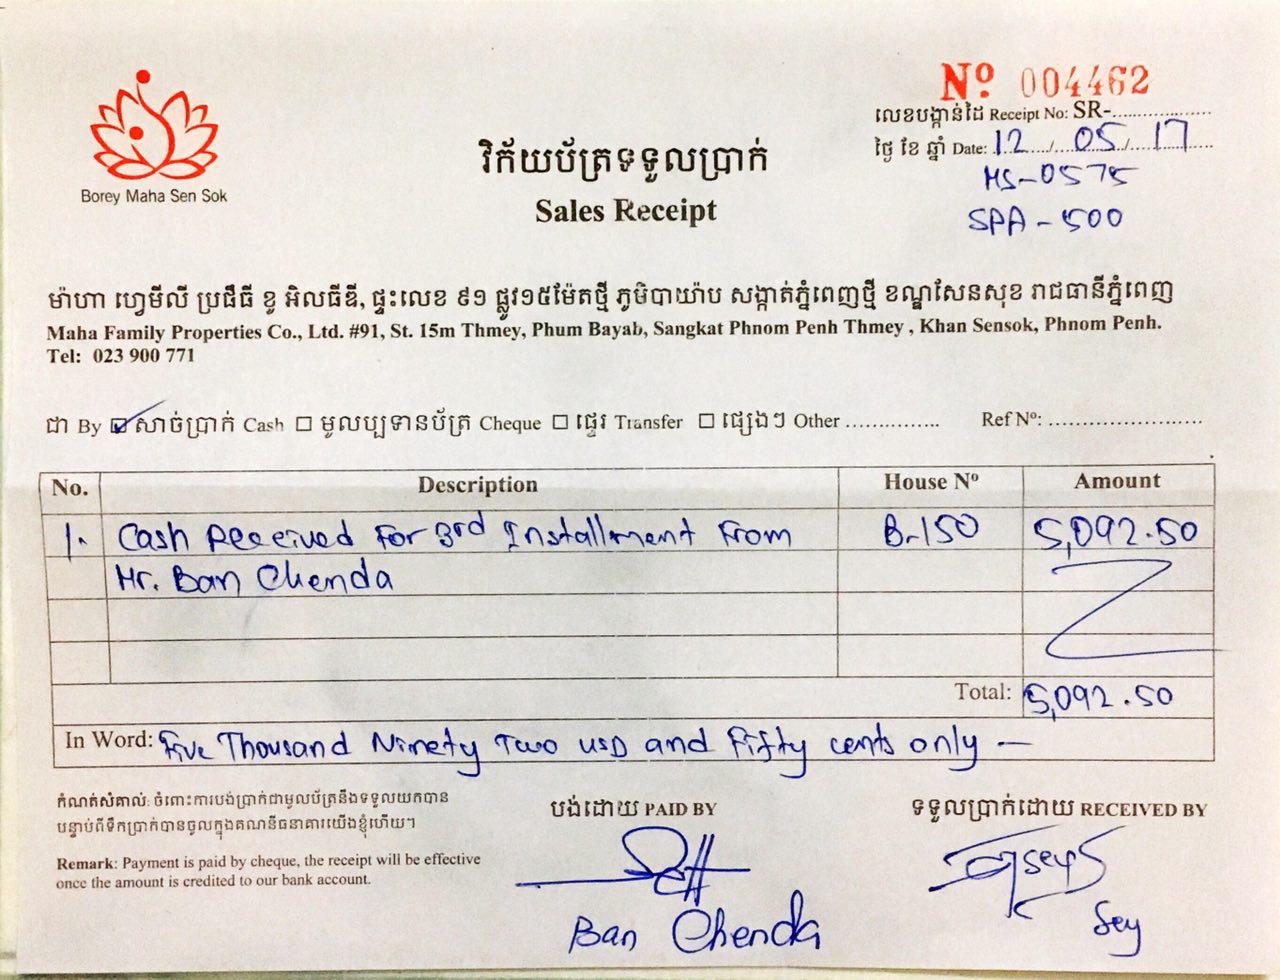 Nº 004462
Borey Maha Sen Sok
វិក័យប័ត្រទទួលប្រាក់
Sales Receipt
លេខបង្កាន់ដៃ Receipt No: SR-....................
ថ្ងៃ ខែ ឆ្នាំ Date: 12 / 05 / 17
MS-0575
SPA-500
ម៉ាហា ហ្វេមីលី ប្រផឹធី ខូ អិលធីឌី, ផ្ទះលេខ ៩១ ផ្លូវ១៥ម៉ែតថ្មី ភូមិបាយ៉ាប សង្កាត់ភ្នំពេញថ្មី ខណ្ឌសែនសុខ រាជធានីភ្នំពេញ
Maha Family Properties Co., Ltd. #91, St. 15m Thmey, Phum Bayab, Sangkat Phnom Penh Thmey , Khan Sensok, Phnom Penh.
Tel: 023 900 771
ជា By ☑ សាច់ប្រាក់ Cash ☐ មូលប្បទានប័ត្រ Cheque ☐ ផ្ទេរ Transfer ☐ ផ្សេងៗ Other ............... Ref Nº: ........................
No. Description House Nº Amount
1. Cash Received For 3rd Installment From B-150 5,092.50
Mr. Ban Chenda
Total: 5,092.50
In Word: Five Thousand Ninety Two USD and Fifty cents only —
កំណត់សំគាល់: ចំពោះការបង់ប្រាក់ជាមូលប័ត្រនឹងទទួលយកបាន
បន្ទាប់ពីទឹកប្រាក់បានចូលក្នុងគណនីធនាគារយើងខ្ញុំហើយ។
Remark: Payment is paid by cheque, the receipt will be effective
once the amount is credited to our bank account.
បង់ដោយ PAID BY
Ban Chenda
ទទួលប្រាក់ដោយ RECEIVED BY
Sey